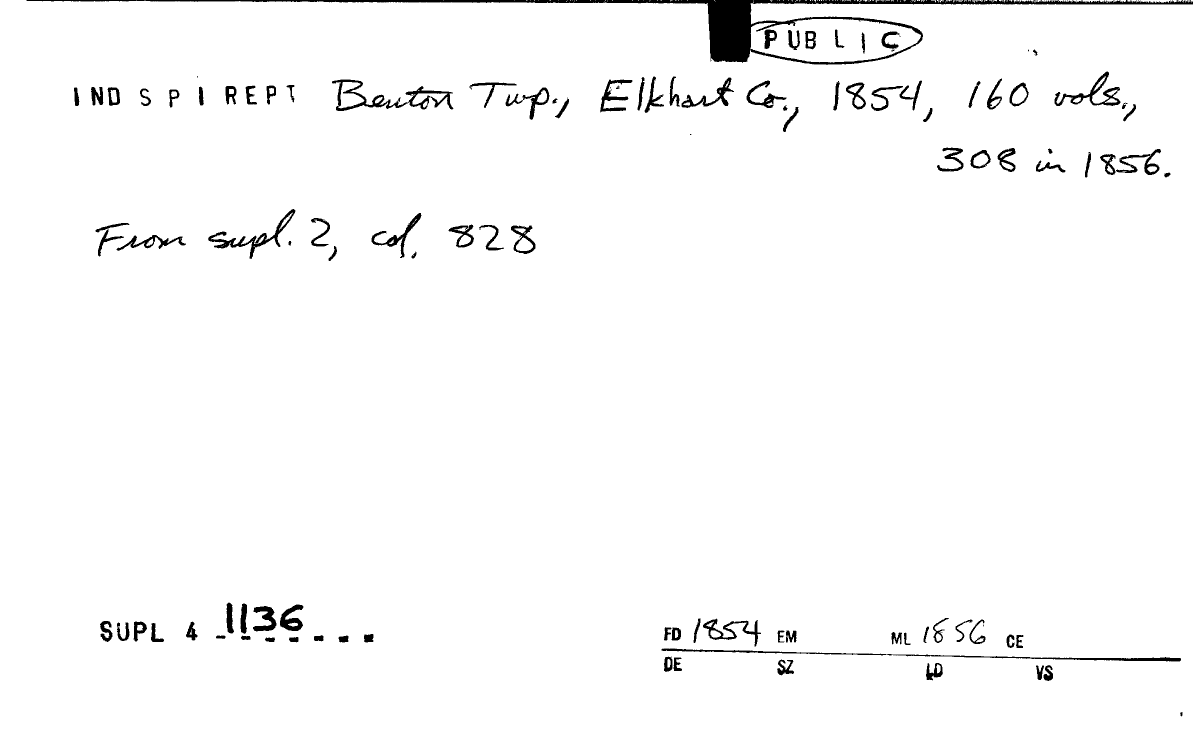 PUBLIC
IND SPI REPT Benton Twp., Elkhart Co., 1854, 160 vols.,
308 in 1856.
From supl. 2, col. 828
SUPL 4 1136
FD 1854 EM ML 1856 CE
DE SZ LD VS